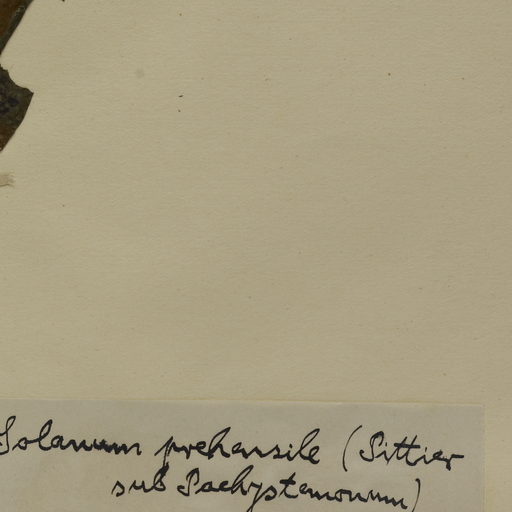 Solanum prehensile (Pittier
sub Pachystemonum)